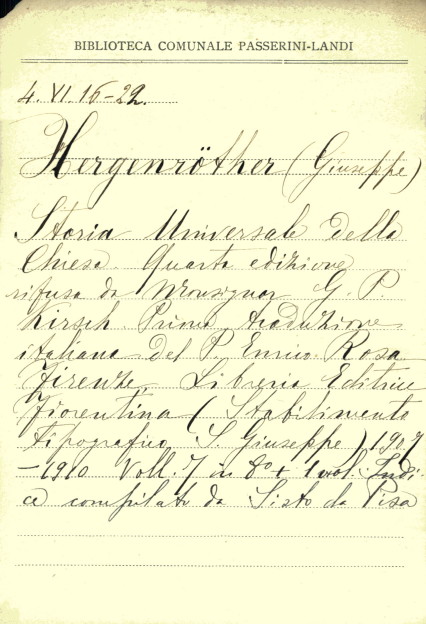 BIBLIOTECA COMUNALE PASSERINI-LANDI
4. VI. 16-22.
Hergenröther (Giuseppe)
Storia Universale della
Chiesa. Quarta edizione
rifusa da Monsignor G. P.
Kirsch. Prima traduzione
italiana del P. Enrico Rosa
Firenze, Libreria Editrice
Fiorentina (Stabilimento
Tipografico S. Giuseppe) 1907
-1910 Voll. 7 in 8° + 1 vol. Indi-
ce compilato da Sisto da Pisa